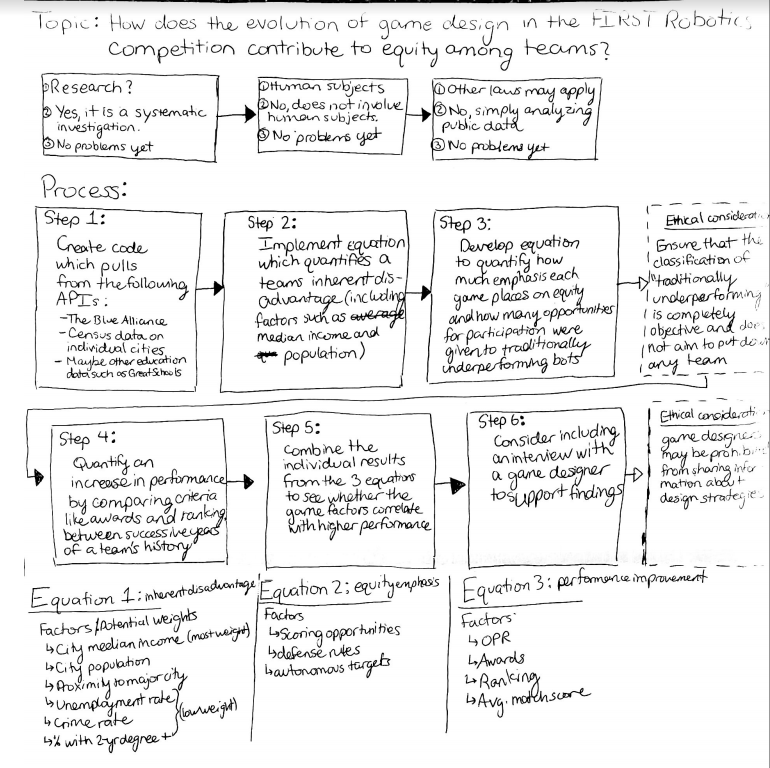 Topic: How does the evolution of game design in the FIRST Robotics
Competition contribute to equity among teams?
① Research?
② Yes, it is a systematic
investigation.
③ No problems yet
① Human subjects
② No, does not involve
human subjects.
③ No problems yet
① Other laws may apply
② No, simply analyzing
public data
③ No problems yet
Process:
Step 1:
Create code
which pulls
from the following
APIs:
- The Blue Alliance
- Census data on
individual cities
- Maybe other education
data such as GreatSchools
Step 2:
Implement Equation
which quantifies a
teams inherent dis-
advantage (including
factors such as average
median income and
population)
Step 3:
Develop equation
to quantify how
much emphasis each
game places on equity
and how many opportunities
for participation were
given to traditionally
underperforming bots
Ethical considerat
Ensure that the
classification of
"traditionally
underperforming
is completely
objective and does
not aim to put down
any team
Step 4:
Quantify an
increase in performance
by comparing criteria
like awards and ranking
between successive years
of a team's history
Step 5:
Combine the
individual results
from the 3 equations
to see whether the
game factors correlate
with higher performance
Step 6:
Consider including
an interview with
a game designer
to support findings
Ethical considerati
game designers
may be prohibit
from sharing infor
mation about
design strategies
Equation 1: inherent disadvantage
Factors/Potential weights
↳ City median income (most weight)
↳ City population
↳ Proximity to major city
↳ Unemployment rate
↳ Crime rate
(low weight)
↳ % with 2-yr degree +
Equation 2: equity emphasis
Factors
↳ Scoring opportunities
↳ defense rules
↳ autonomous targets
Equation 3: performance improvement
Factors:
↳ OPR
↳ Awards
↳ Ranking
↳ Avg. match score